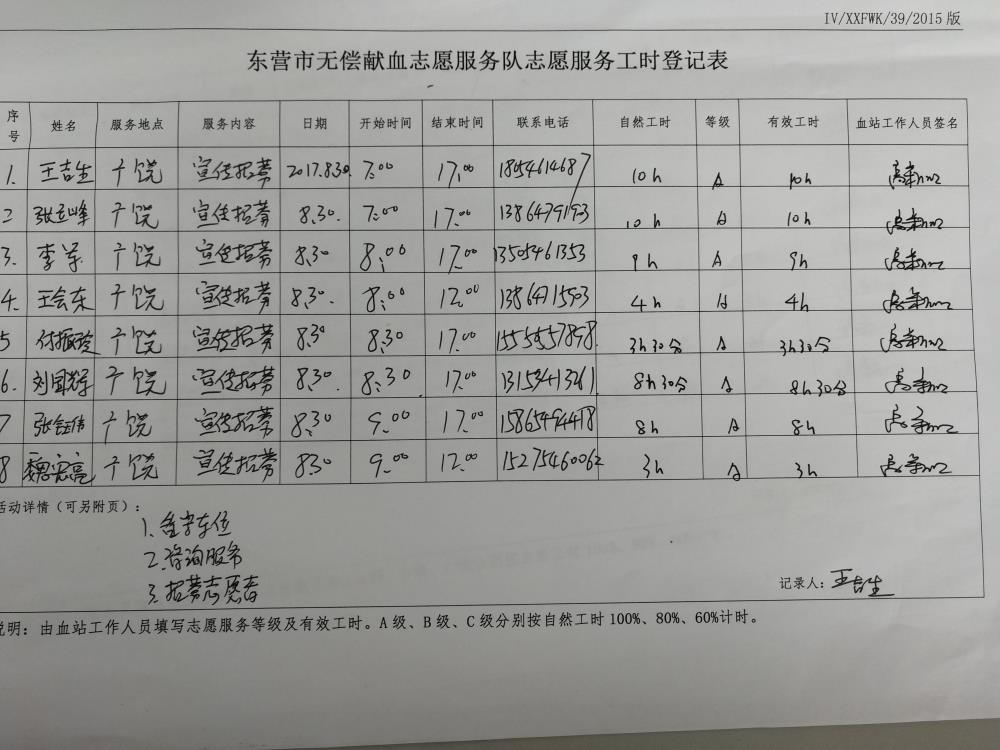 IV/XXFWK/39/2015 版
东营市无偿献血志愿服务队志愿服务工时登记表
序号 姓名 服务地点 服务内容 日期 开始时间 结束时间 联系电话 自然工时 等级 有效工时 血站工作人员签名
1. 王吉生 广饶 宣传招募 2017.8.30 7:00 17:00 18954614687 10h A 10h
2 张立峰 广饶 宣传招募 8.30. 7:00 17:00 13864791903 10h A 10h
3. 李军 广饶 宣传招募 8.30 8:00 17:00 13505461353 9h A 9h
4. 王会东 广饶 宣传招募 8.30. 8:00 12:00 13864715903 4h A 4h
5 付振玲 广饶 宣传招募 8.30 8.30 17:00 15554557898 3h30分 A 3h30分
6. 刘国辉 广饶 宣传招募 8.30. 8:30 17:00 13153413261 8h30分 A 8h30分
7 张钰伟 广饶 宣传招募 8.30 9:00 17:00 15865494418 8h A 8h
8 魏宪亮 广饶 宣传招募 830 9:00 12:00 15275460062 3h A 3h
活动详情（可另附页）：
1. 车位
2. 咨询服务
3. 招募志愿者
记录人：王吉生
说明：由血站工作人员填写志愿服务等级及有效工时。A 级、B 级、C 级分别按自然工时 100%、80%、60%计时。